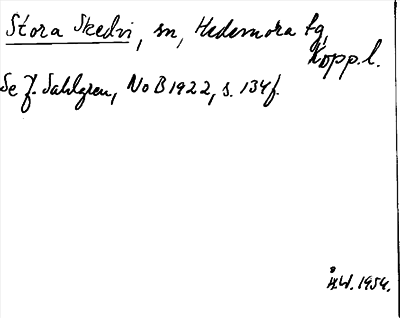 Stora Skedvi, sn, Hedemora tg,
Kopp.l.
Se J. Sahlgren, NoB 1922, s. 134f.
Å.W. 1954.